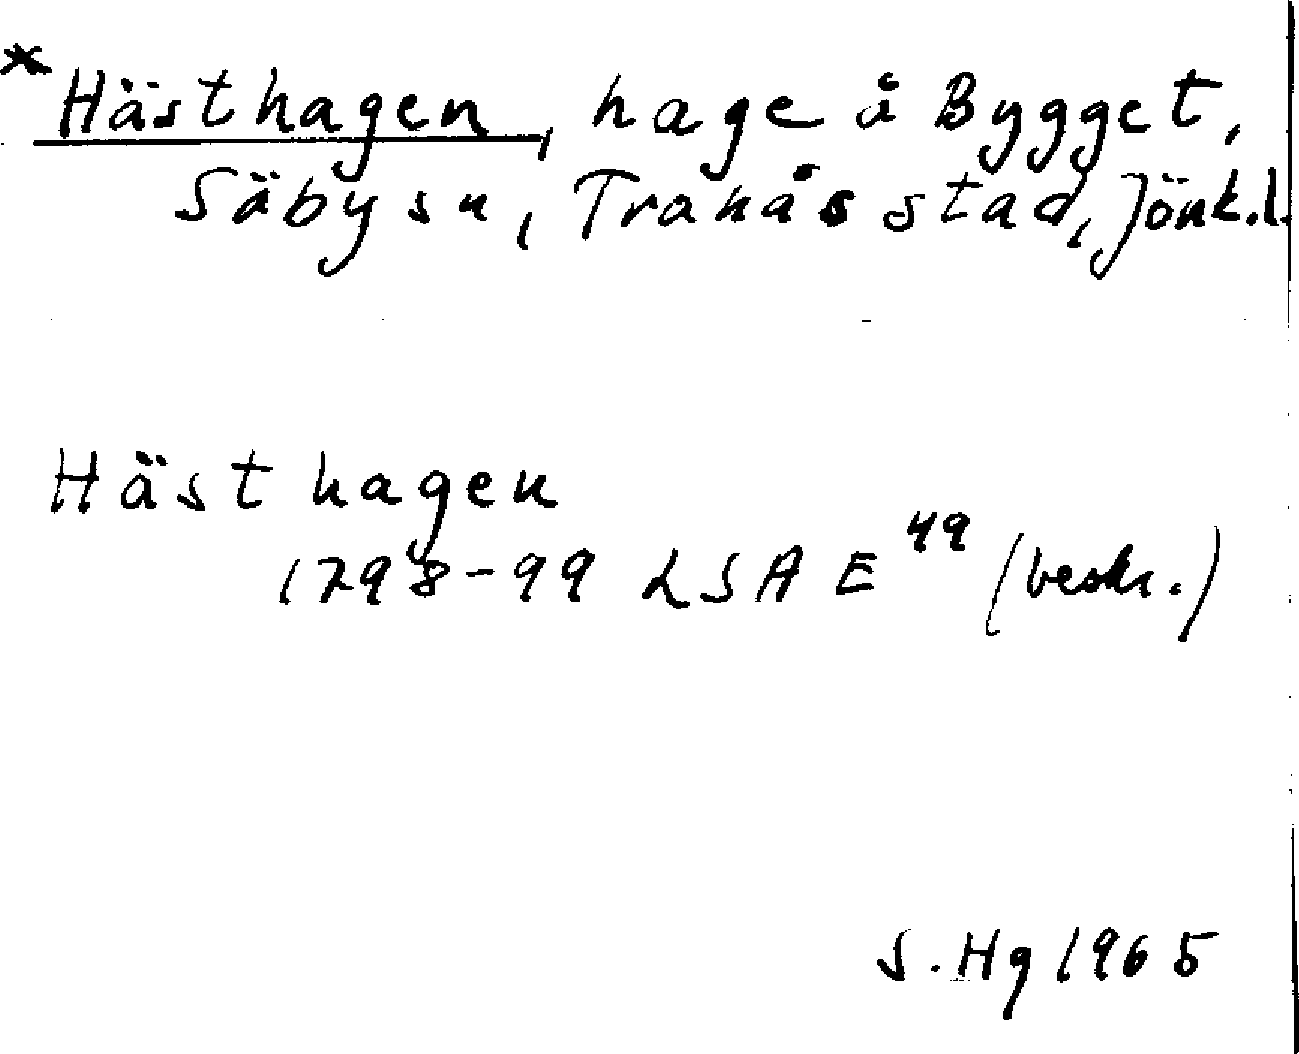 * Hästhagen, hage å Bygget,
Säbysn, Tranås stad, Jönk.l.
Hästhagen
1798-99 LSA E 49 (beskr.)
S. Hg 1965